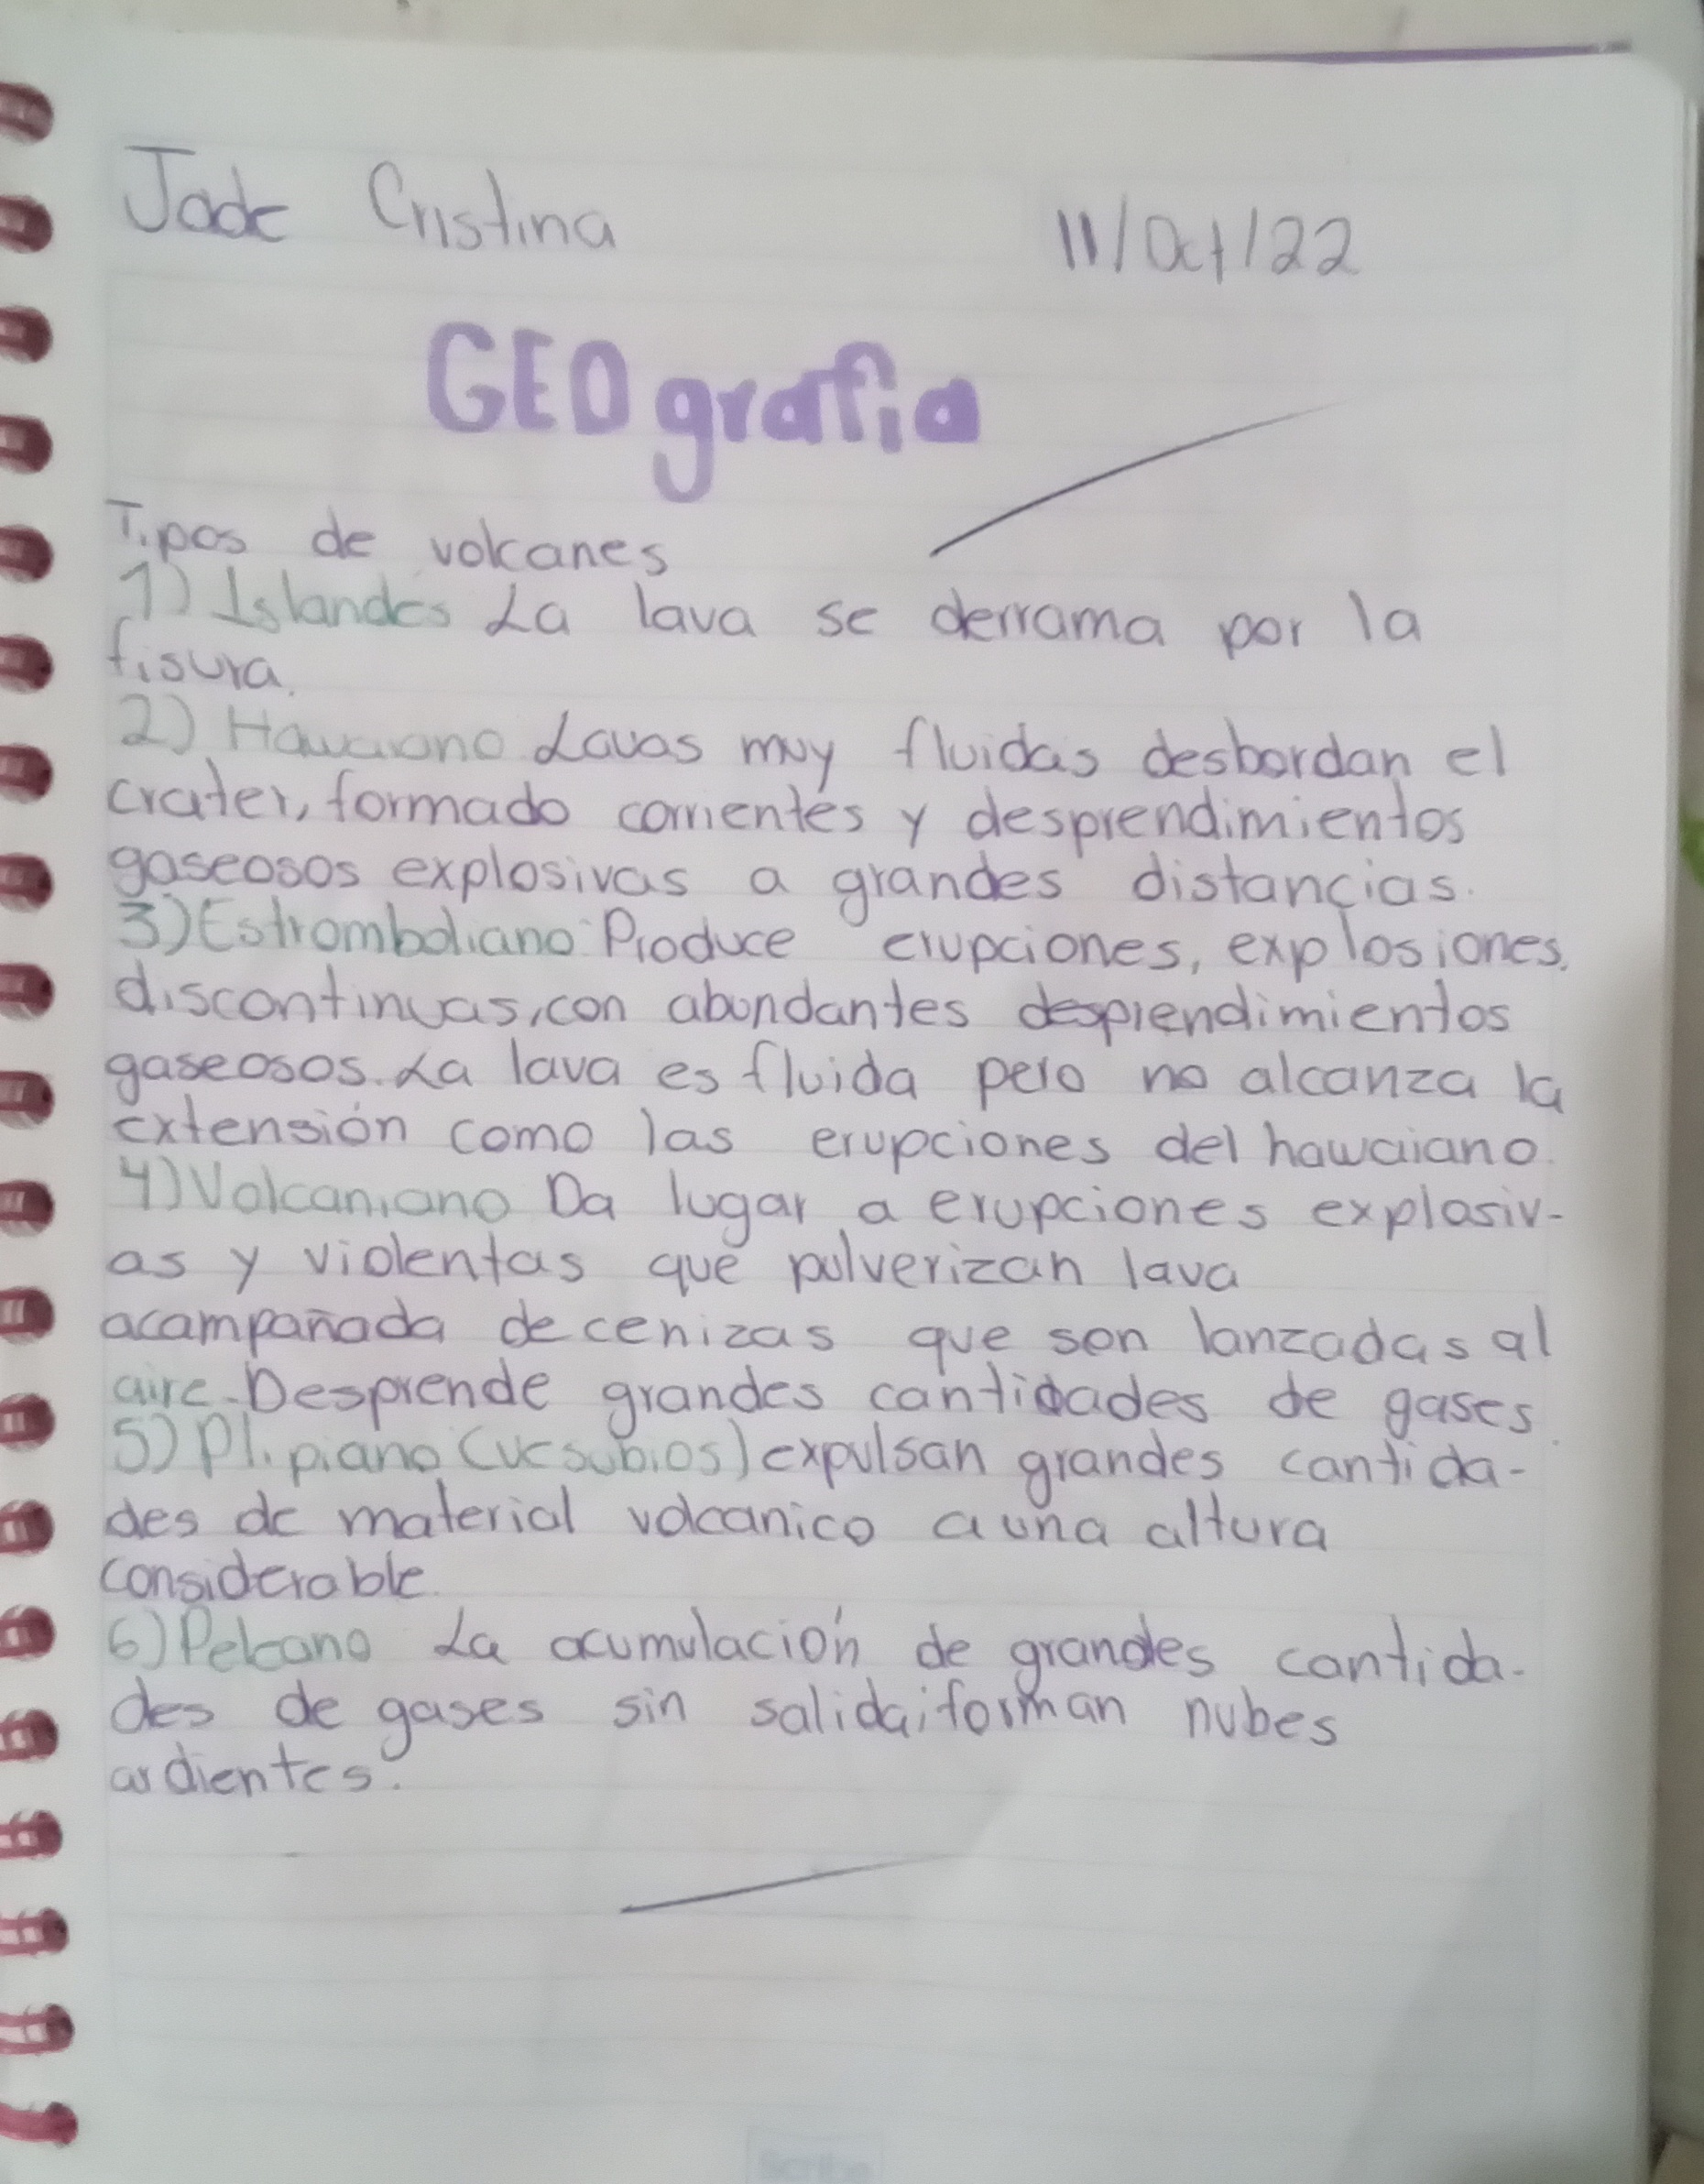 Jade Cristina 11/Oct/22
GEOgrafia
Tipos de volcanes
1) Islandes La lava se derrama por la
fisura.
2) Hawaiano Lavas muy fluidas desbordan el
crater, formado corrientes y desprendimientos
gaseosos explosivas a grandes distancias.
3) Estromboliano: Produce erupciones, explosiones,
discontinuas, con abundantes desprendimientos
gaseosos. La lava es fluida pero no alcanza la
extensión como las erupciones del hawaiano.
4) Volcaniano Da lugar a erupciones explosiv-
as y violentas que pulverizan lava
acampañada de cenizas que son lanzadas al
aire. Desprende grandes cantidades de gases.
5) Plipiano (vesubios) expulsan grandes cantida-
des de material volcanico a una altura
considerable.
6) Peleano La acumulación de grandes cantida-
des de gases sin salida; forman nubes
ardientes.
Scribe